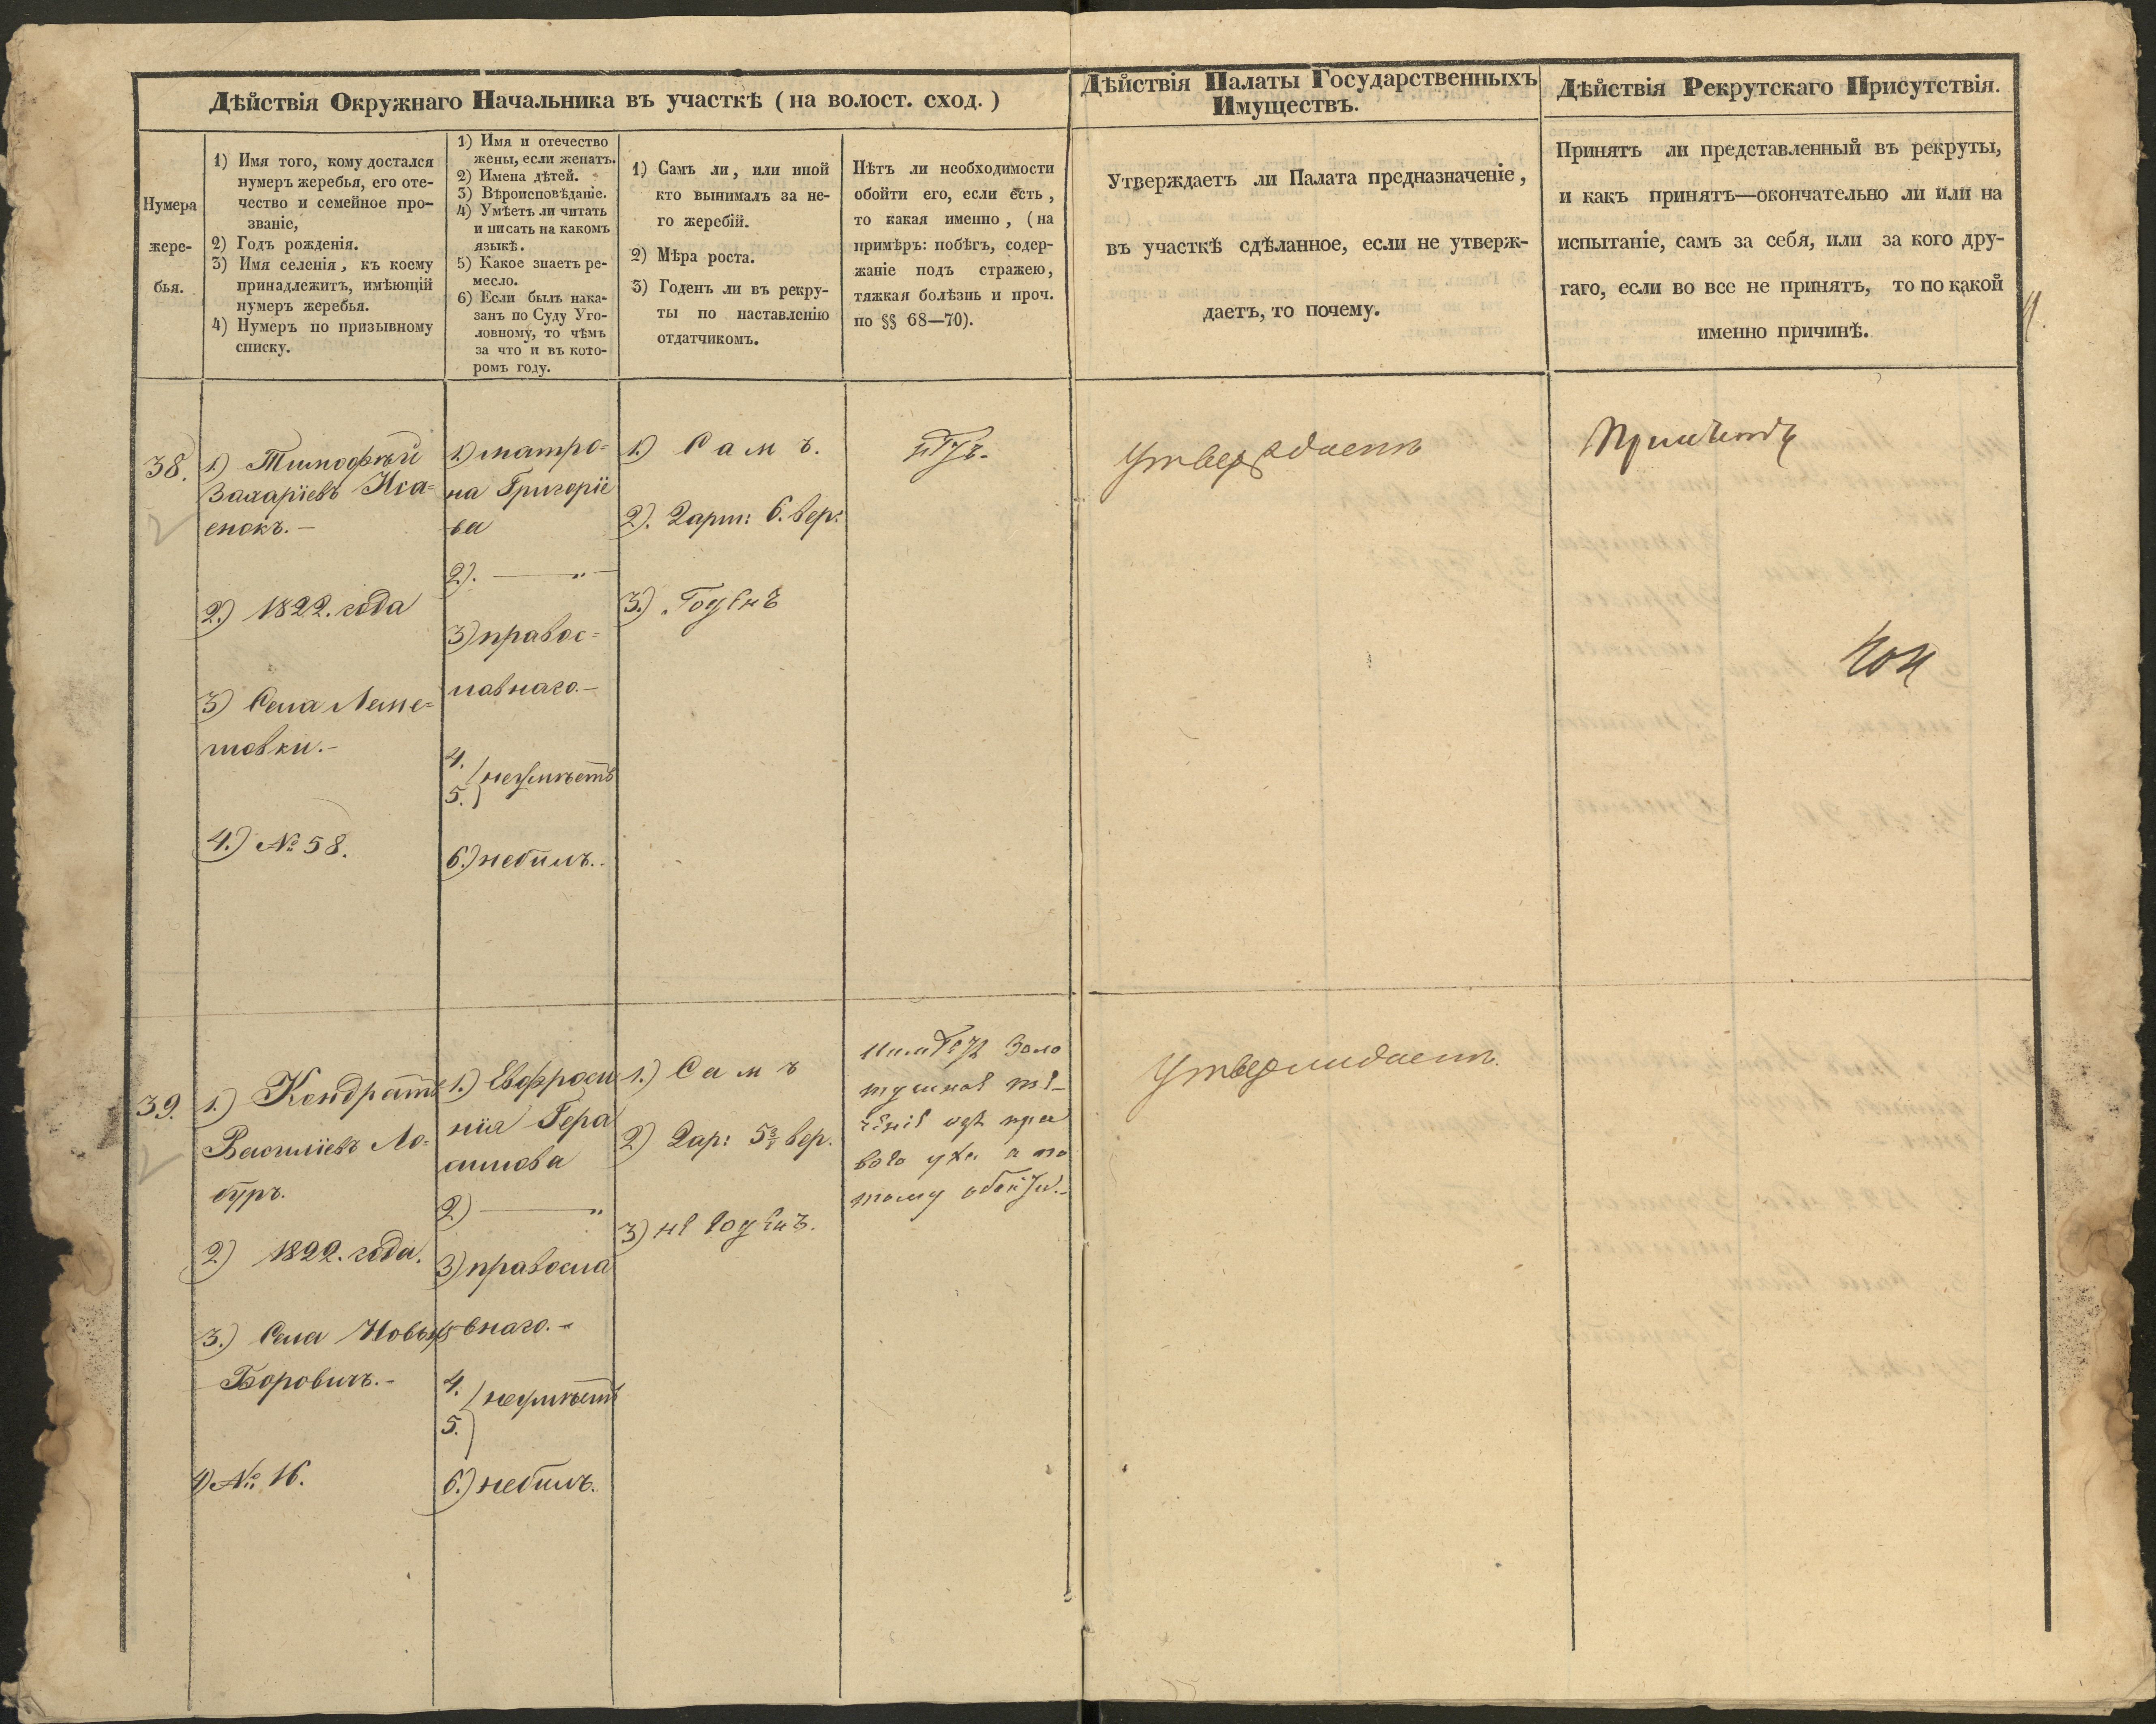 Дѣйствія Окружнаго Начальника въ участкѣ ( на волост. сход. )
Нумера
жере-
бья.
1) Имя того, кому достался
нумеръ жеребья, его оте-
чество и семейное про-
званіе,
2) Годъ рожденія.
3) Имя селенія, къ коему
принадлежитъ, имѣющій
нумеръ жеребья.
4) Нумеръ по призывному
списку.
1) Имя и отечество
жены, если женатъ.
2) Имена дѣтей.
3) Вѣроисповѣданіе.
4) Умѣетъ ли читать
и писать на какомъ
языкѣ.
5) Какое знаетъ ре-
месло.
6) Если былъ нака-
занъ по Суду Уго-
ловному, то чѣмъ
за что и въ кото-
ромъ году.
1) Самъ ли, или иной
кто вынималъ за не-
го жеребій.
2) Мѣра роста.
3) Годенъ ли въ рекру-
ты по наставленію
отдатчикомъ.
Нѣтъ ли необходимости
обойти его, если есть,
то какая именно, (на
примѣръ: побѣгъ, содер-
жаніе подъ стражею,
тяжкая болѣзнь и проч.
по §§ 68—70).
Дѣйствія Палаты Государственныхъ
Имуществъ.
Утверждаетъ ли Палата предназначеніе,
въ участкѣ сдѣланное, если не утверж-
даетъ, то почему.
Дѣйствія Рекрутскаго Присутствія.
Принятъ ли представленный въ рекруты,
и какъ принятъ—окончательно ли или на
испытаніе, самъ за себя, или за кого дру-
гаго, если во все не принятъ, то по какой
именно причинѣ.
38.
1.) Тимофѣй
Захаріевъ Иса=
енокъ.—
2.) 1822. года
3) Села
4.) № 58.
1.) матро=
на Григоріе
ва
2). — „ —
3) правос=
лавнаго.—
4.
5.) неумѣетъ
6.) небылъ..
1.) Самъ.
2). 2 арш: 6. вер:
3.) Годенъ
нѣтъ.
Утверждаетъ
Принятъ
39.
1.) Кондратъ
Василіевъ Ло=
буръ.
2.) 1822. года.
3.) Села Новыхъ
Боровичъ.-
4) № 16.
1.) Евфроси
нія Гера
симова
2) — „
3) правосла
внаго.—
4.
5.) неумѣетъ
6.) небылъ.
1.) Самъ
2) 2 ар: 5 3/8 вер.
3) не годенъ.
золо
тушное те-
ченіе изъ пра
ваго уха а по
тому обойти.-
Утверждаетъ.